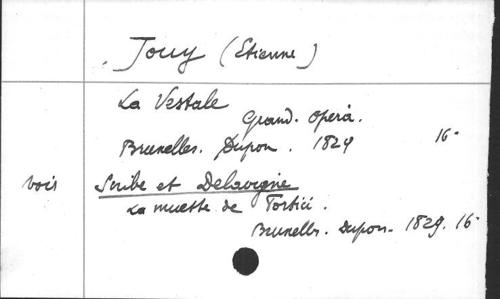 Jouy (Etienne)
La Vestale
Grand. Opera.
Bruxelles. Dupon. 1829 16-
vois Scribe et Delavigne
La muette de Portici.
Bruxelles. Dupon- 1829. 16-